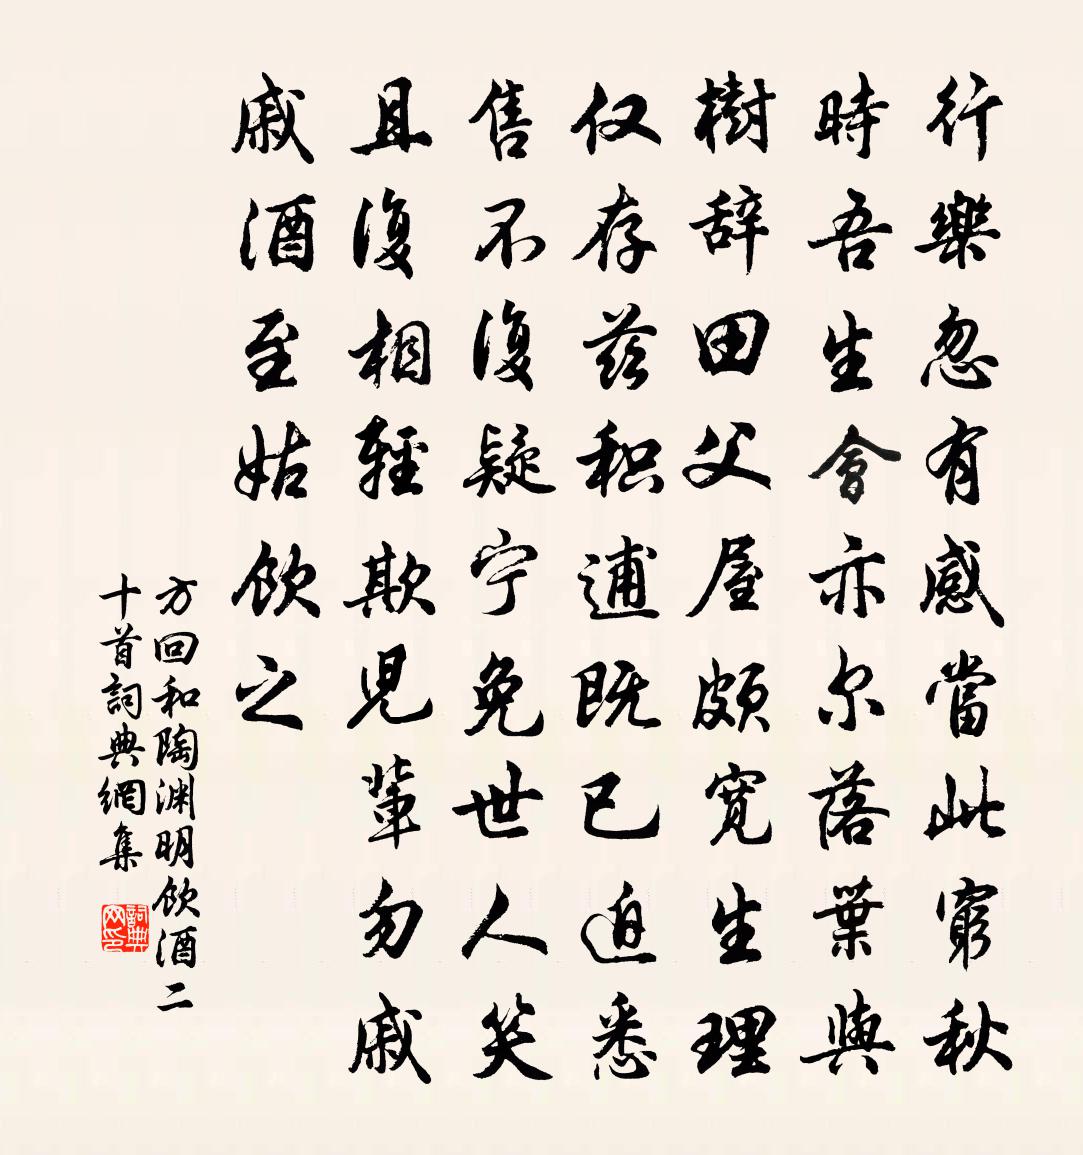 行樂忽有感當此窮秋
時吾生會亦尔落葉與
樹辞田父屋頗寛生理
仅存兹积逋既已迫悉
售不復疑宁免世人笑
且復相輕欺児輩勿戚
戚酒至姑飲之
方回和陶渊明飲酒二
十首詞典網集
詞典网印